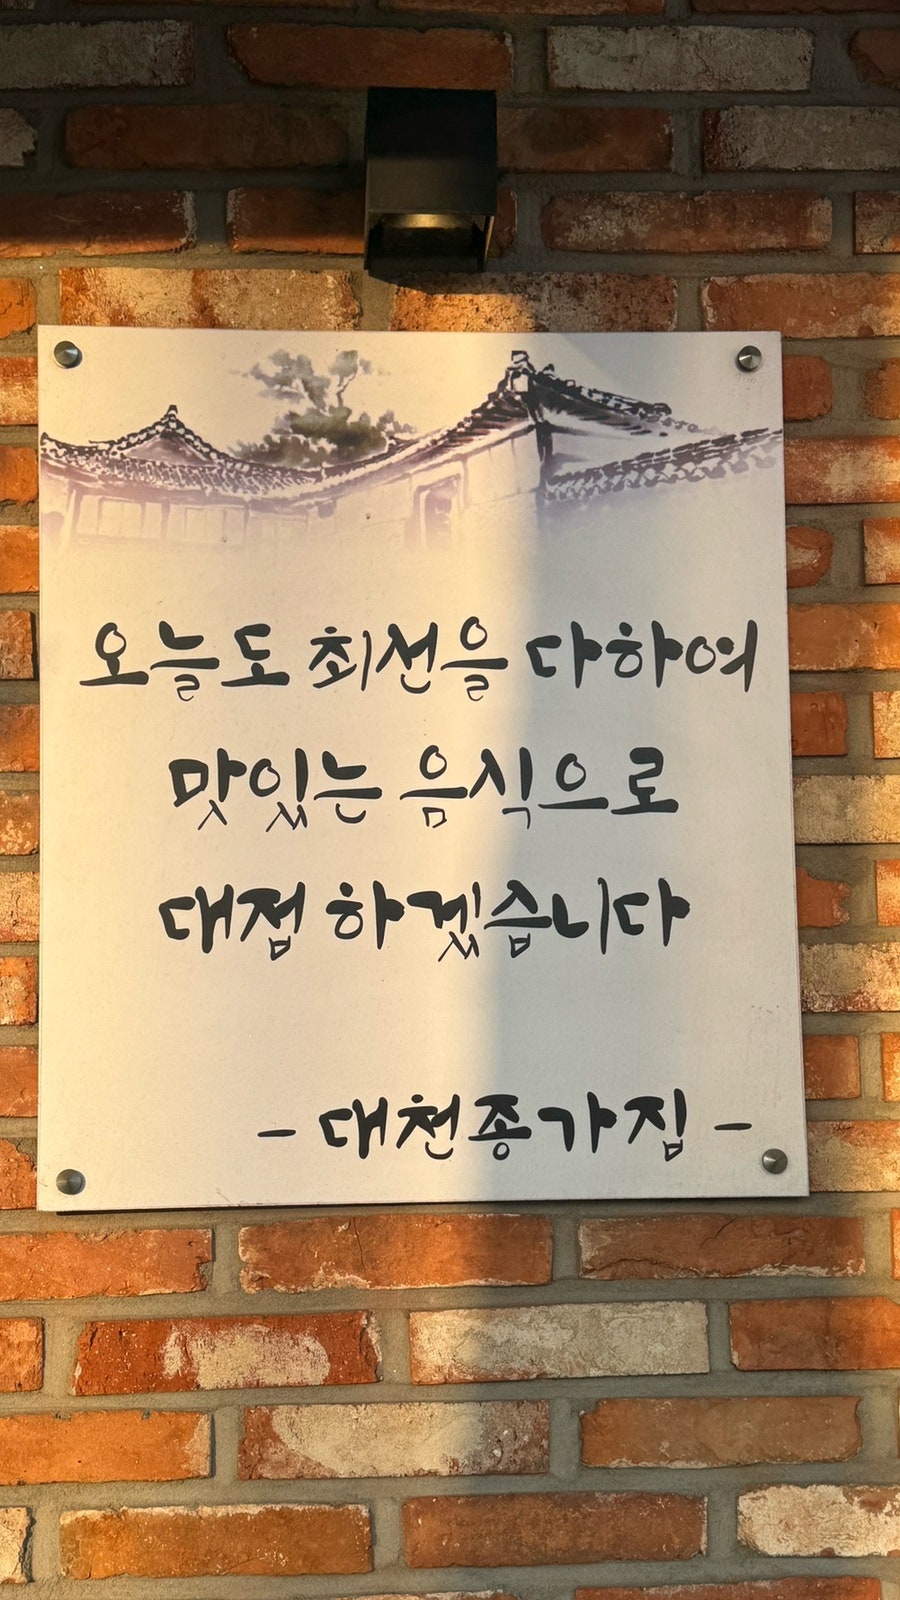 오늘도 최선을 다하여
맛있는 음식으로
대접 하겠습니다
- 대천종가집 -